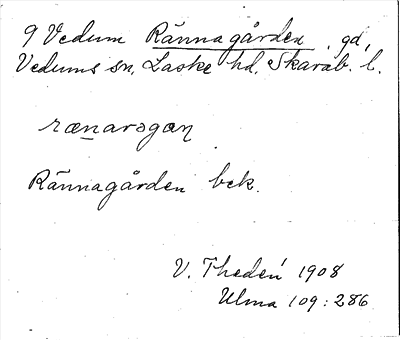 9 Vedum Rännagården gd,
Vedums sn, Laske hd, Skarab. l.
rænarəgæn
Rännagården bek.
V. Thedén 1908
Ulma 109:286